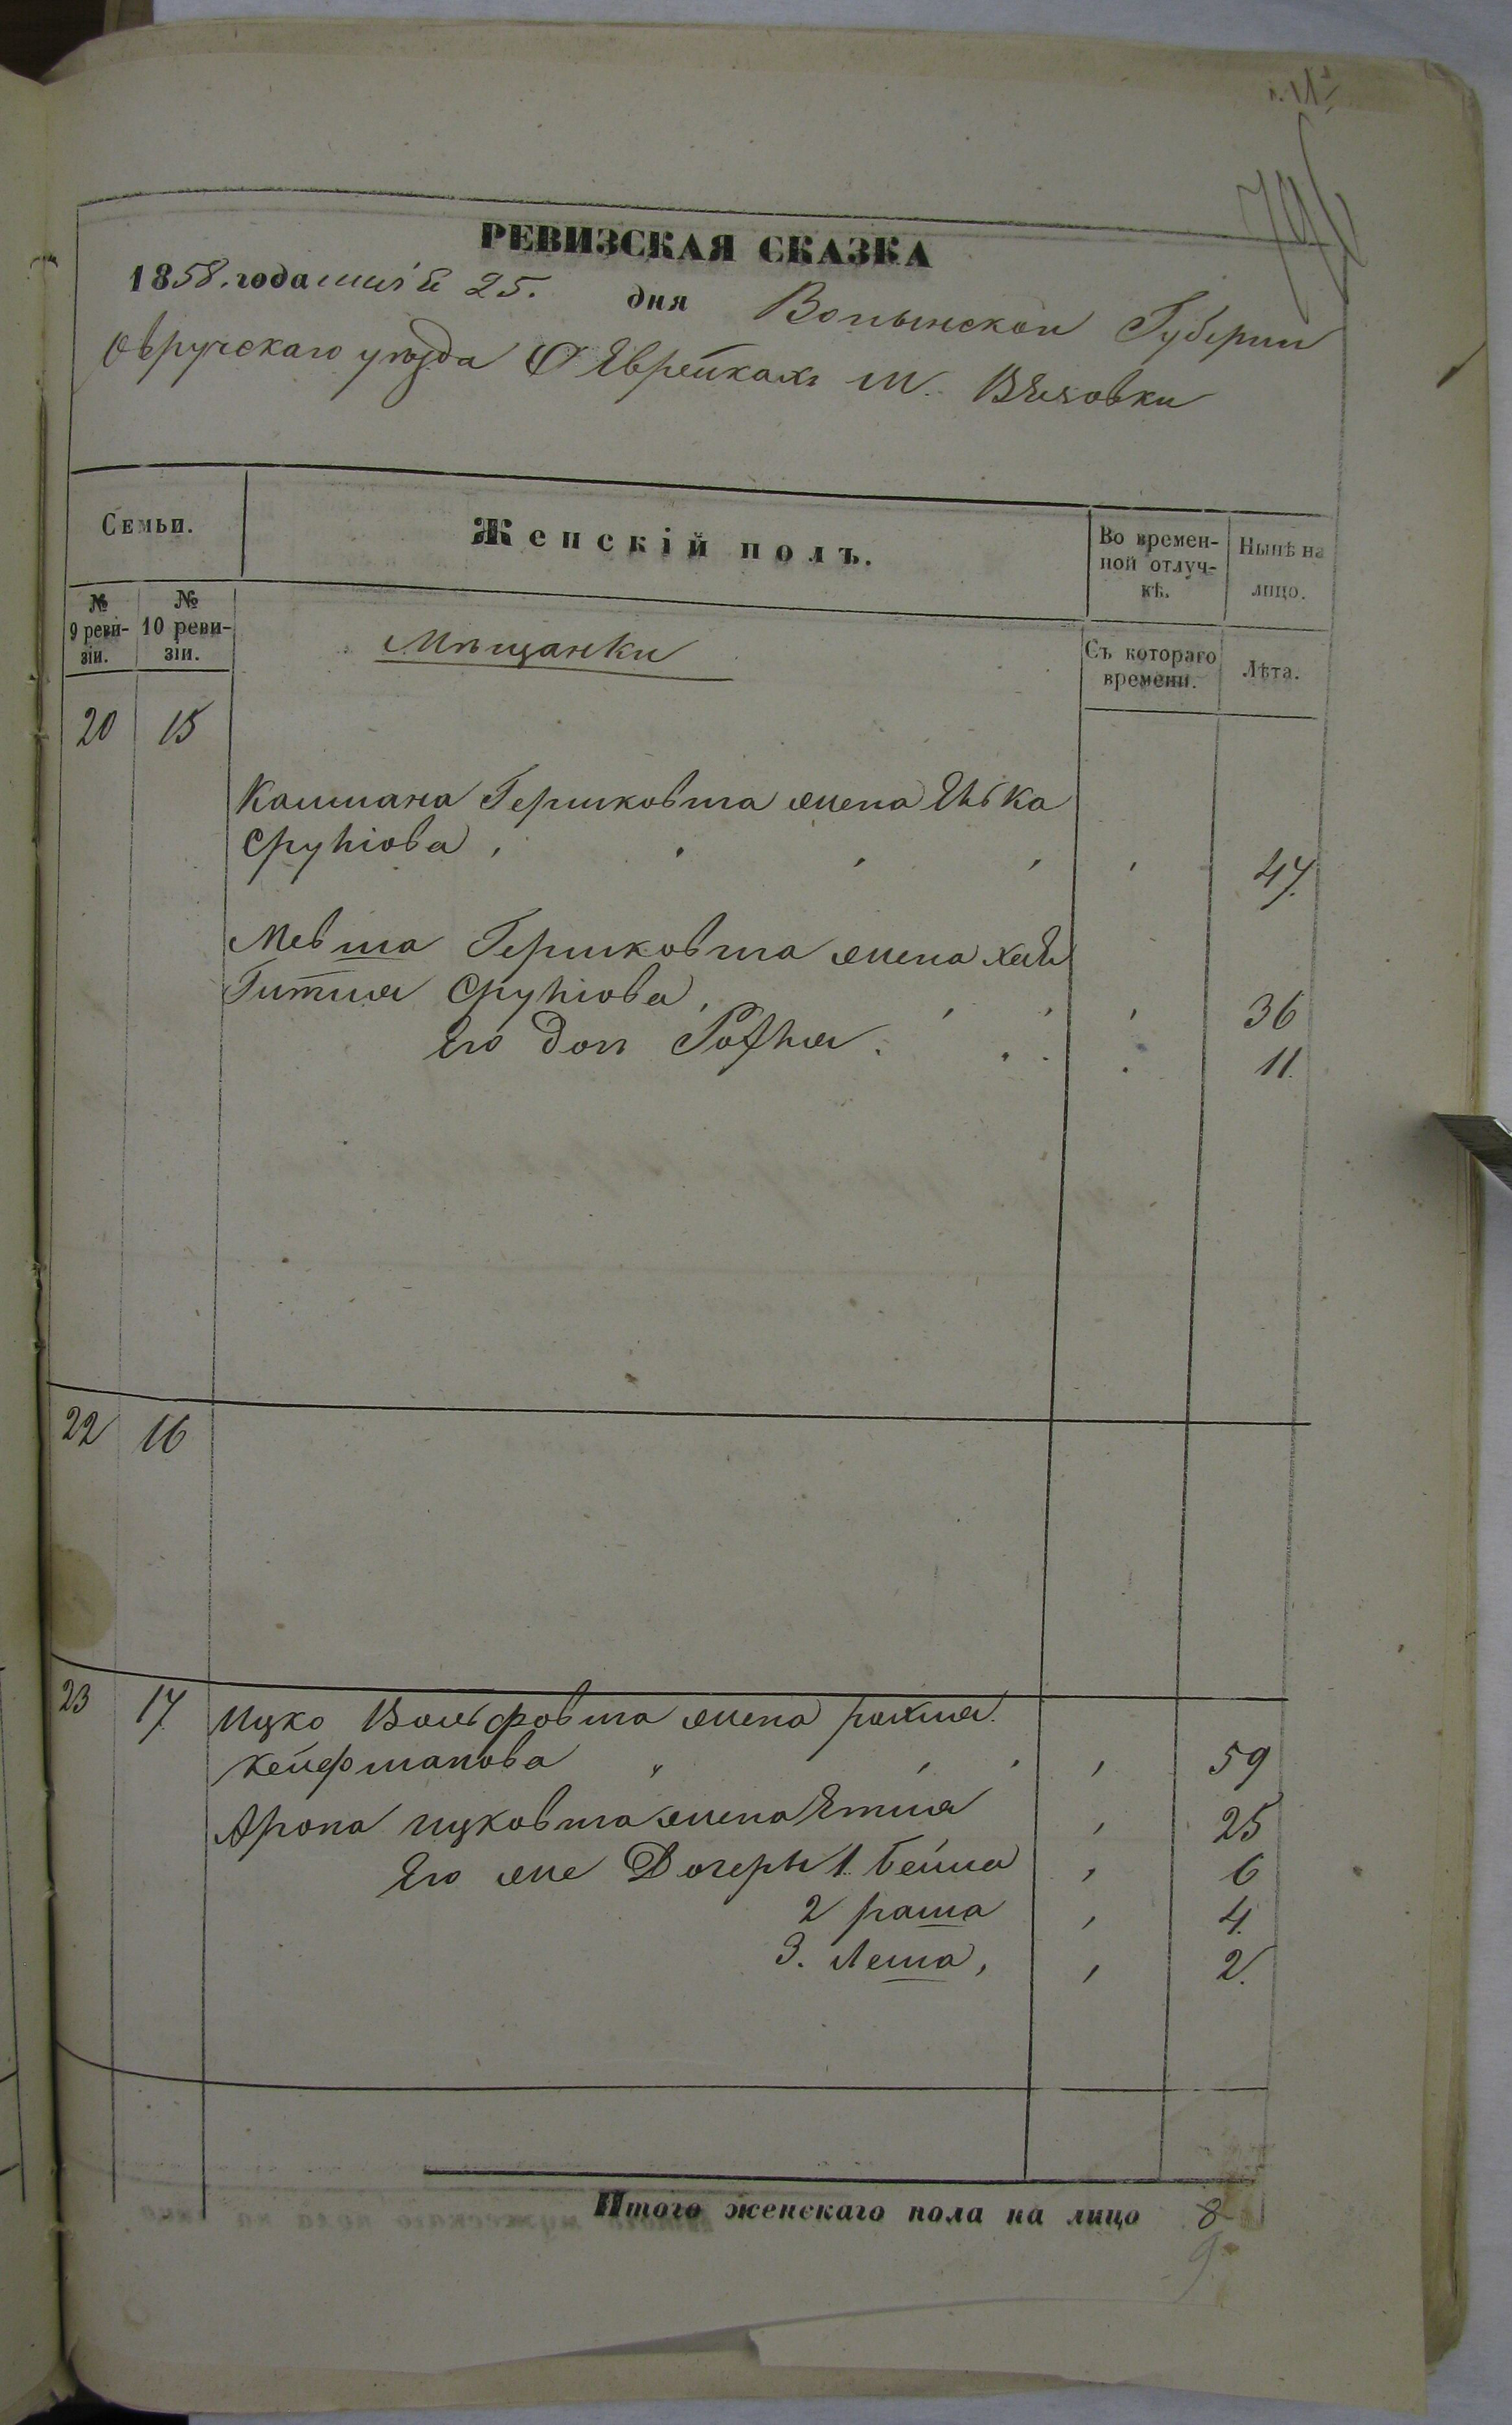 РЕВИЗСКАЯ СКАЗКА
1858. года 25. дня Волынской Губерніи
Овручскаго уѣзда О Еврейкахъ м.
Семьи.
Женскій полъ.
Во времен-
ной отлуч-
кѣ.
Нынѣ на
лицо.
№
9 реви-
зіи.
№
10 реви-
зіи.
Мѣщанки
Съ котораго
времени.
Лѣта.
20 15
Калмана Гершковича жена
Сруліова, 47.
Гершковича жена Хая
Гитля Сруліова, 36
Его доч 11.
22 16
23 17. Ицко Вольфовича жена рахля
59
Арона ицковича жена Етля 25
Его же Дочери 1. Бейла 6
2 раша 4.
3. Леша, 2.
Итого женскаго пола на лицо 8
9